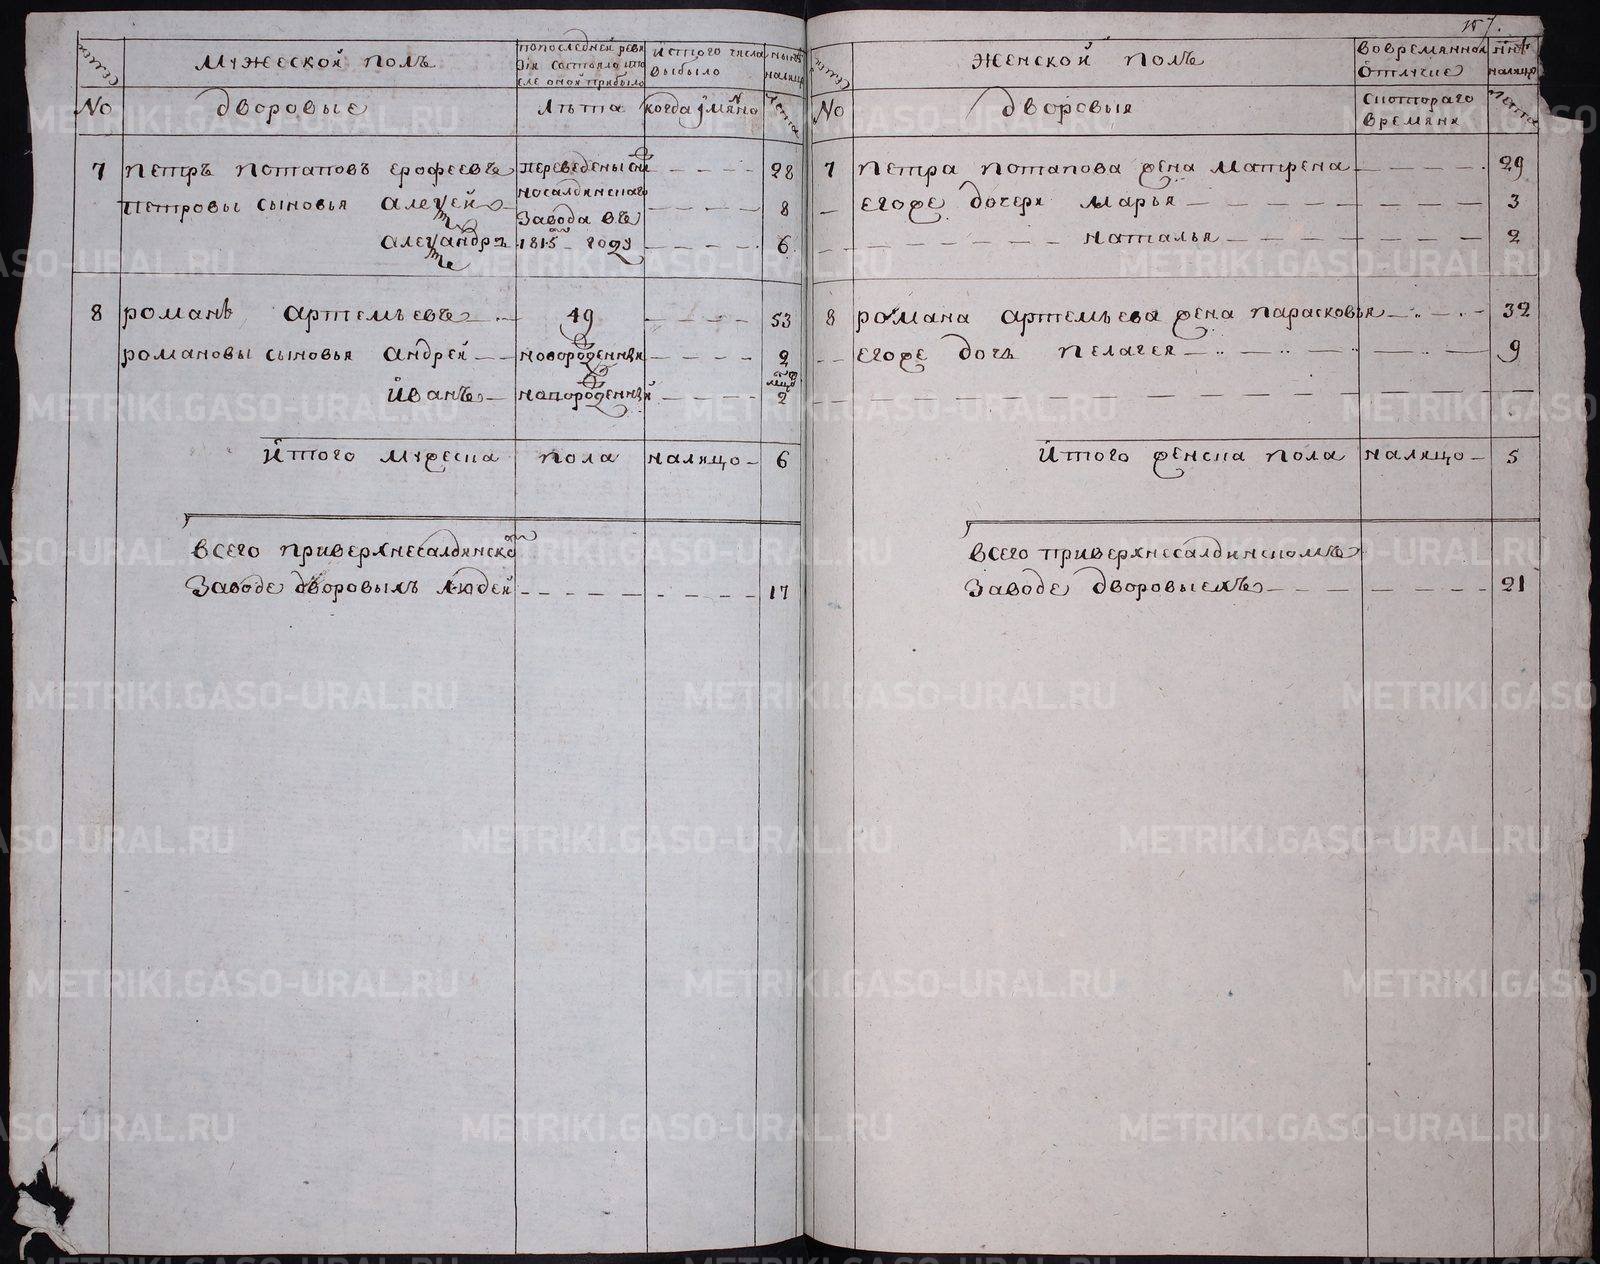 157.
семьи
Мужеской полъ
попоследней реви
зiи состояло ипо
сле оной прибыло
изтого числа
выбыло
нынѣ
налицо
No
дворовые
лѣта
когда имяно
лета
7 Петръ Потаповъ Ерофеевъ переведены сни 28
жнесалдинскаго
Петровы сыновья Алексей 8
завода въ
Александръ 1815 году 6
8 Романъ Артемьевъ 49 53
Романовы сыновья Андрей новорожденныи 2
мецов
Иванъ новорожденный 2
Итого мужеска пола налицо 6
Всего приверхнесалдинском
Заводе дворовыхъ людей 17
семьи
Женской полъ
вовременной
отлучке
нынѣ
налицо
No
дворовыя
скотораго
времяни
лета
7 Петра Потапова жена Матрена 29
Егоже дочери Марья 3
Наталья 2
8 Романа Артемьева жена Парасковья 32
Егоже дочь Пелагея 9
Итого женска пола налицо 5
Всего приверхнесалдинскомъ
Заводе дворовыехъ 21
METRIKI.GASO-URAL.RU